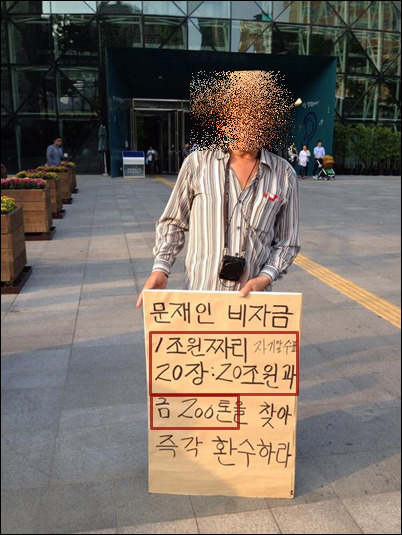 문재인 비자금
1조원짜리 자기앞수표
20장:20조원과
금 200톤을 찾아
즉각 환수하라